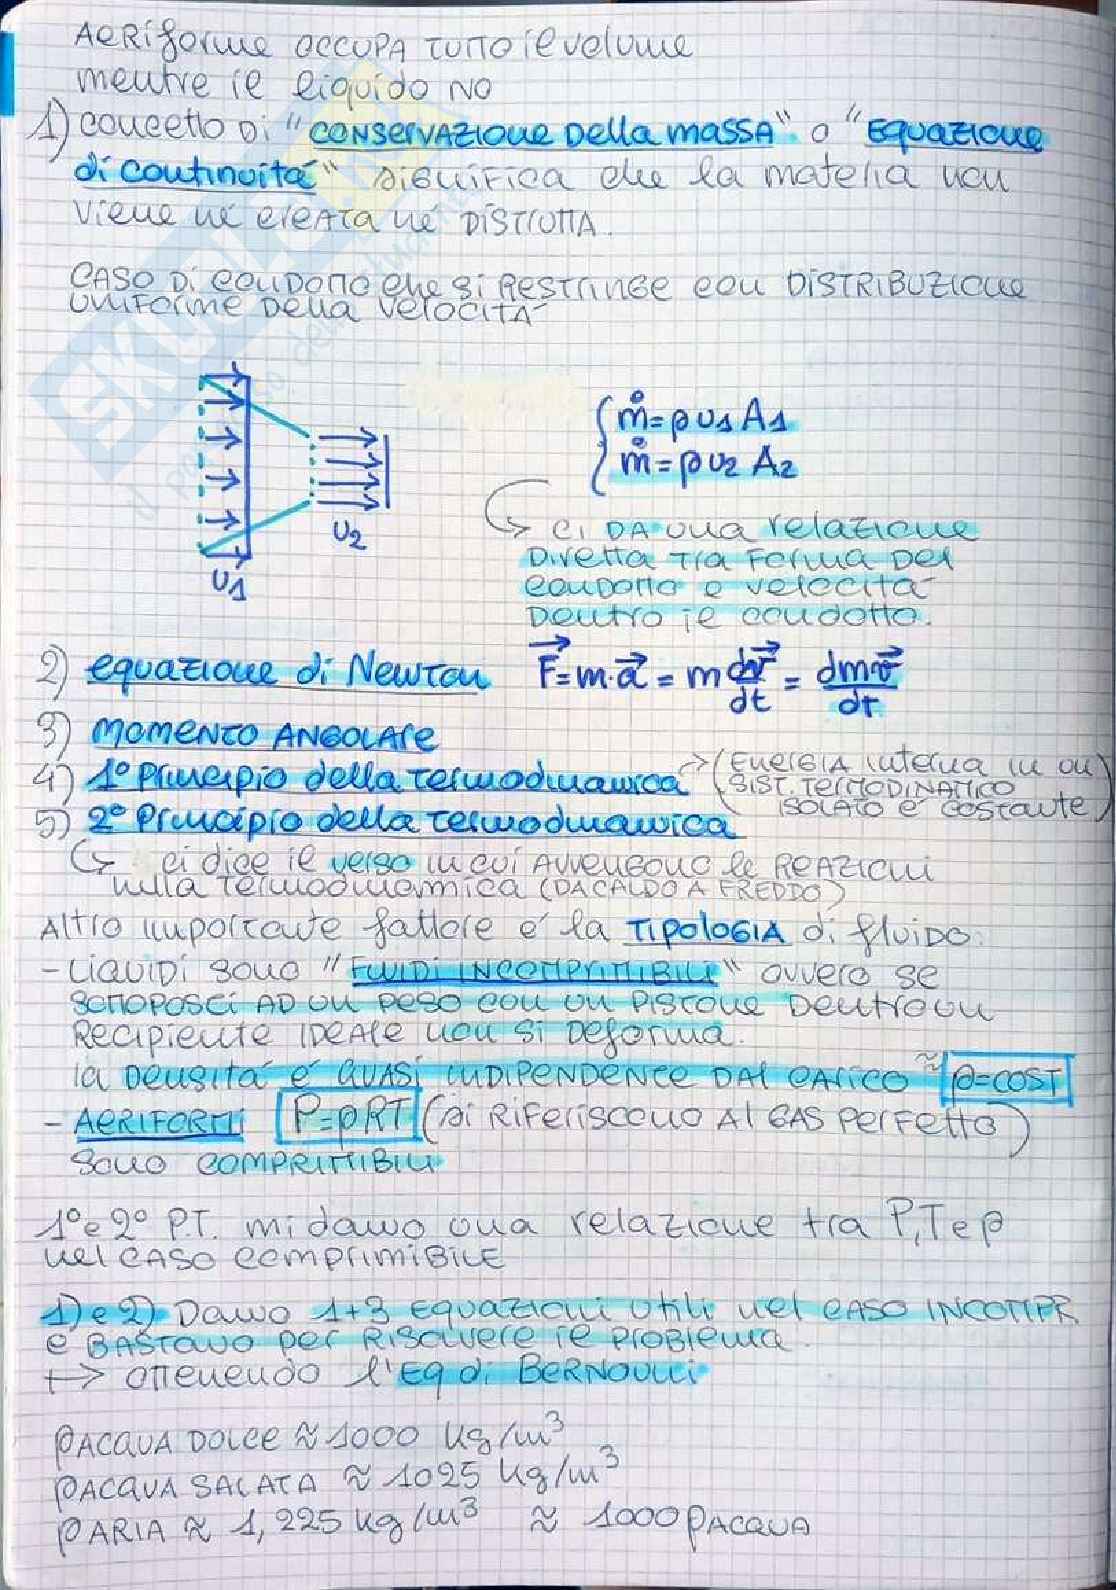 Aeriforme occupa tutto il volume
mentre il liquido no
1) concetto di "conservazione della massa" o "equazione
di continuità" significa che la materia non
viene né creata né distrutta.
caso di condotto che si restringe con distribuzione
uniforme della velocità
ṁ=ρ υ1 A1
ṁ=ρ υ2 A2
υ1
υ2
ci dà una relazione
diretta tra forma del
condotto e velocità
dentro il condotto.
2) equazione di Newton F⃗=m·a⃗ = m dv⃗/dt = dm·v⃗/dt
3) momento angolare
4) 1° principio della termodinamica → (energia interna in un
sist. termodinamico
isolato è costante)
5) 2° principio della termodinamica
↳ ci dice il verso in cui avvengono le reazioni
nella termodinamica (da caldo a freddo)
Altro importante fattore è la tipologia di fluido:
- Liquidi sono "fluidi incomprimibili" ovvero se
sottoposti ad un peso con un pistone dentro un
recipiente ideale non si deforma.
la densità è quasi indipendence dal carico ≈ ρ=cost
- aeriformi P=ρRT (si riferiscono al gas perfetto)
sono comprimibili
1° e 2° P.T. mi danno una relazione tra P,T e ρ
nel caso comprimibile
1) e 2) Danno 1+3 equazioni utili nel caso incompr
e bastano per risolvere il problema.
↦ ottenendo l'Eq di Bernoulli
ρ acqua dolce ≈ 1000 kg/m³
ρ acqua salata ≈ 1025 kg/m³
ρ aria ≈ 1,225 kg/m³ ≈ 1000 ρ acqua